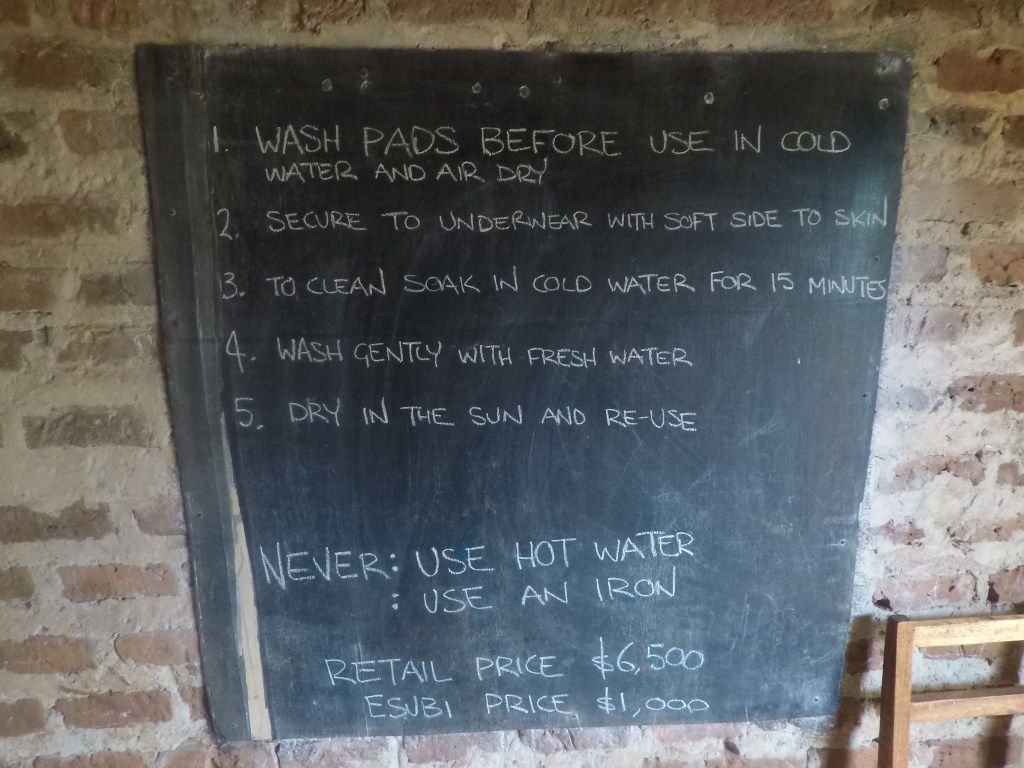 1. WASH PADS BEFORE USE IN COLD
WATER AND AIR DRY
2. SECURE TO UNDERWEAR WITH SOFT SIDE TO SKIN
3. TO CLEAN SOAK IN COLD WATER FOR 15 MINUTES
4. WASH GENTLY WITH FRESH WATER
5. DRY IN THE SUN AND RE-USE
NEVER: USE HOT WATER
: USE AN IRON
RETAIL PRICE $6,500
ESUBI PRICE $1,000